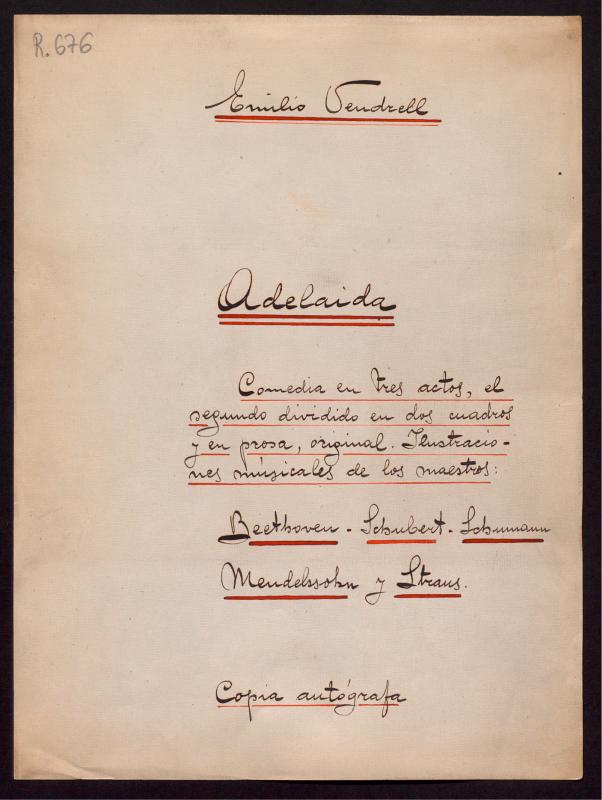 R. 676
Emilio Vendrell
Adelaida
Comedia en tres actos, el
segundo dividido en dos cuadros
y en prosa, original. Ilustracio-
nes músicales de los maestros:
Beethoven - Schubert - Schumann
Mendelssohn y Straus.
Copia autógrafa